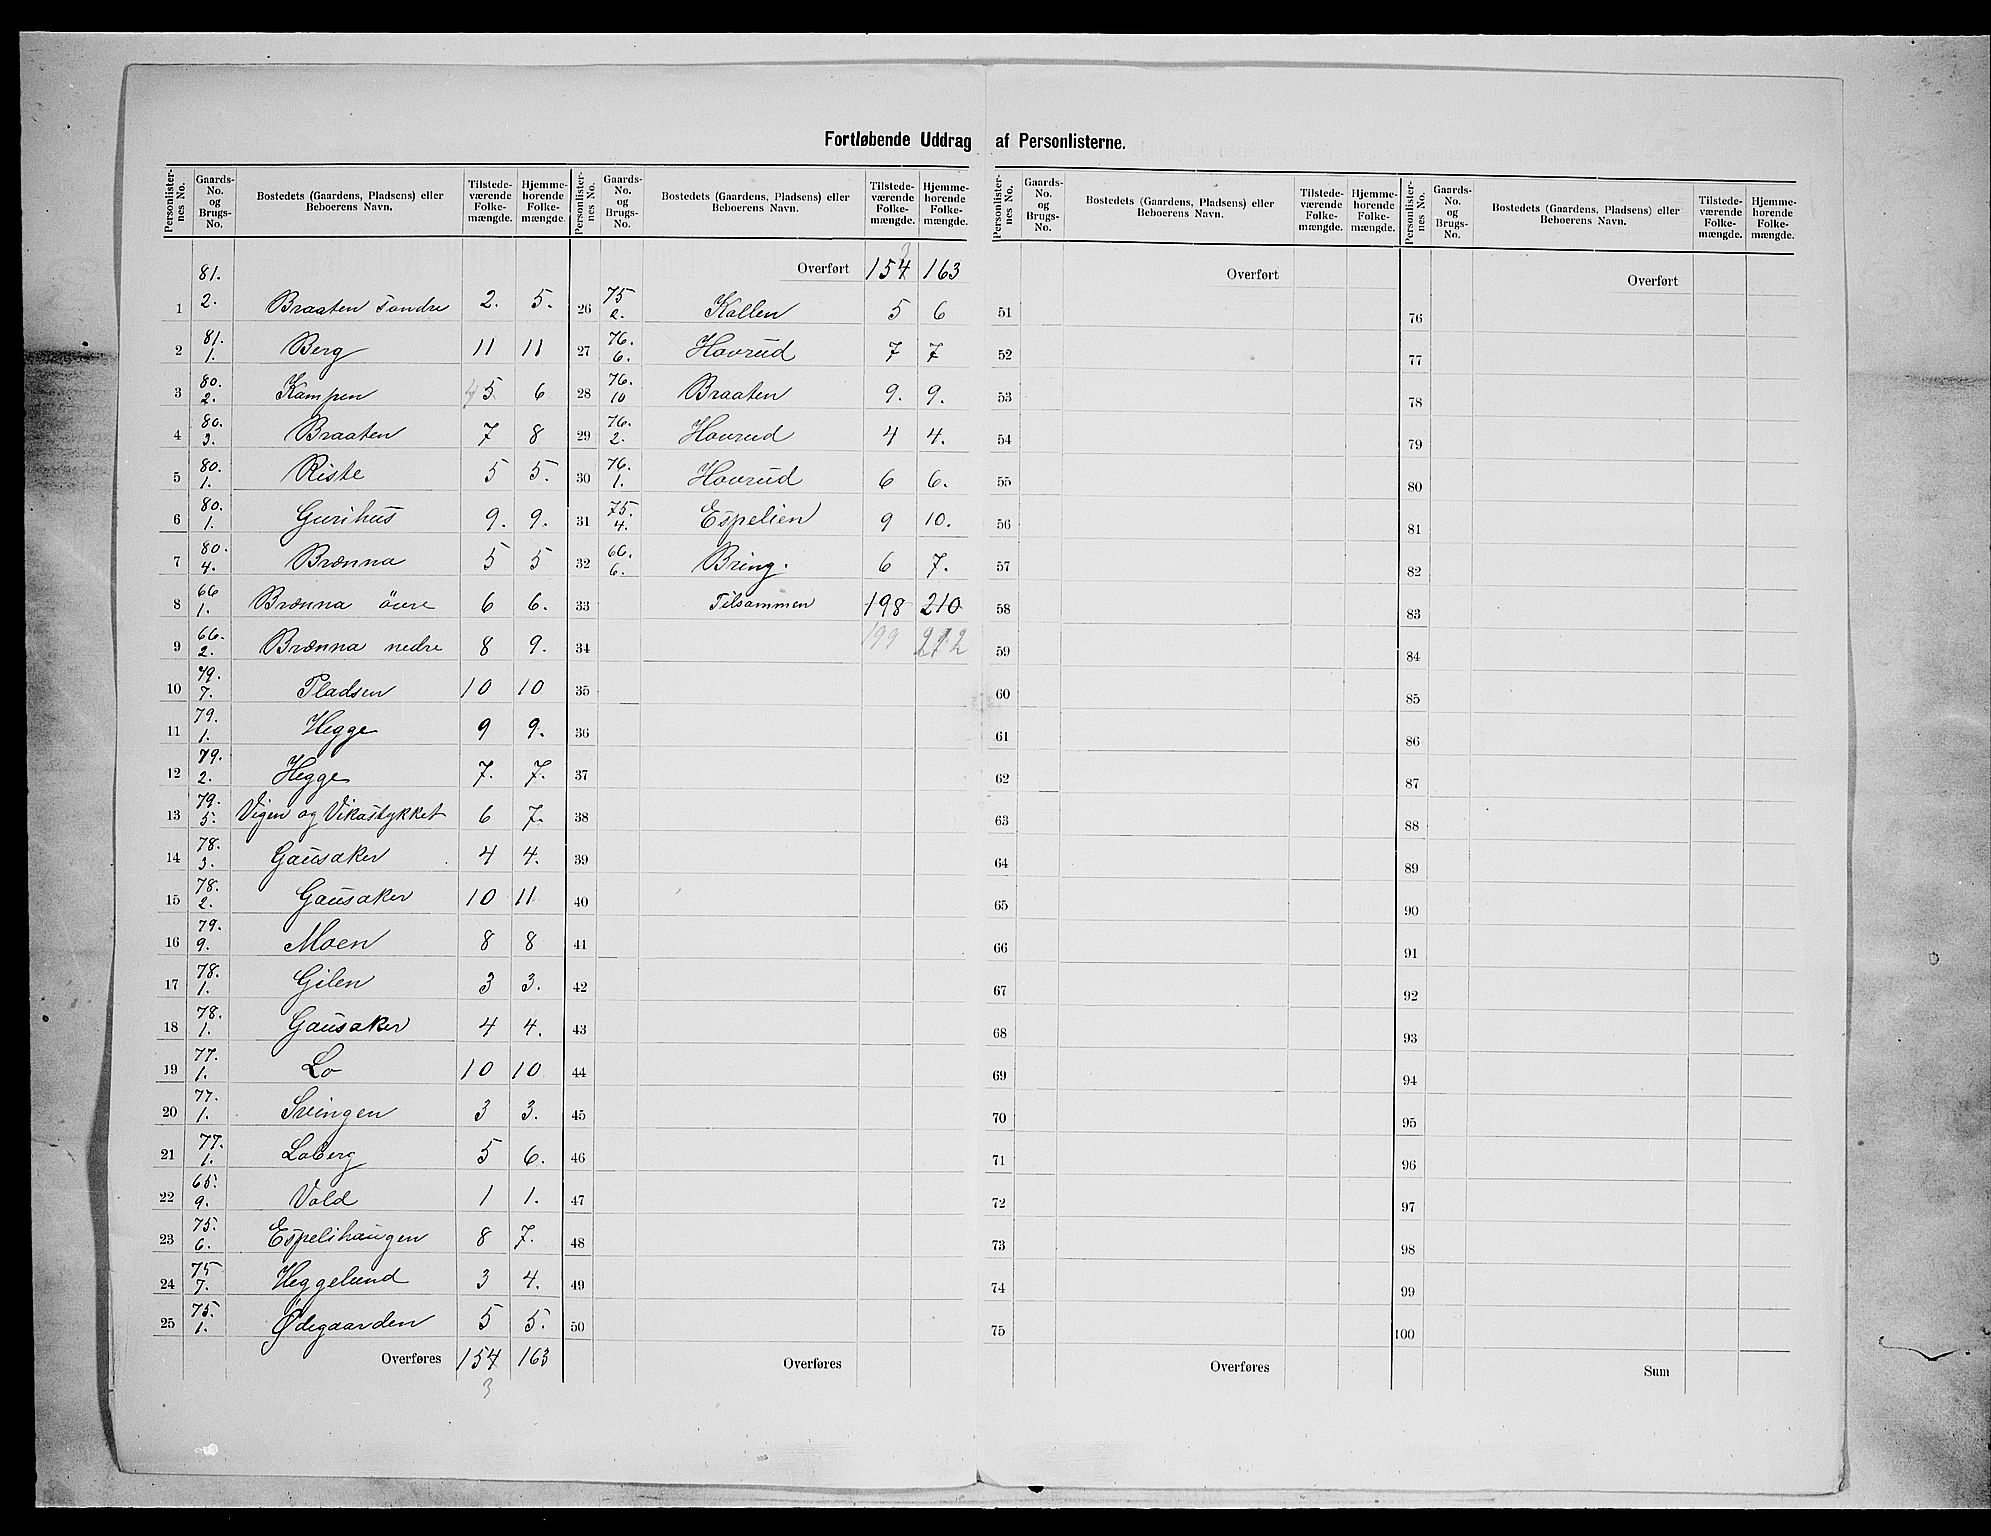 Fortløbende Uddrag af Personlisterne.
Personlisternes No. Gaards-No. og Brugs-No. Bostedets (Gaardens, Pladsens) eller Beboerens Navn. Tilstedeværende Folkemængde. Hjemmehørende Folkemængde.
1 81. 2. Braaten søndre 2. 5.
2 81. 1. Berg 11 11
3 80. 2. Kampen 4 5 6
4 80. 3. Braaten 7 8
5 80. 1. Riste 5 5.
6 80. 1. Gurihus 9. 9.
7 80. 4. Brænna 5 5
8 66 1. Brænna övre 6 6.
9 66. 2. Brænna nedre 8 9.
10 79. 7. Pladsen 10 10
11 79. 1. Hegge 9 9.
12 79. 2. Hegge 7. 7.
13 79. 5. Vigen og Vikastykket 6 7.
14 78. 3. Gausaker 4 4.
15 78. 2. Gausaker 10 11
16 79. 9. Moen 8 8
17 78. 1. Gilen 3 3.
18 78. 1. Gausaker 4 4.
19 77. 1. Lo 10 10
20 77. 1. Svingen 3 3.
21 77. 1. Loberg 5 6.
22 65. 9. Vold 1 1.
23 75. 6. Espelihaugen 8 7.
24 75 7. Heggelund 3 4.
25 75. 1. Ødegaarden 5 5.
Overføres 154 163
3
Personlisternes No. Gaards-No. og Brugs-No. Bostedets (Gaardens, Pladsens) eller Beboerens Navn. Tilstedeværende Folkemængde. Hjemmehørende Folkemængde.
3
Overført 154 163
26 75 2. Kallen 5 6
27 76. 6. Hovrud 7 7
28 76. 10 Braaten 9. 9.
29 76. 2. Hovrud 4 4.
30 76. 1. Hovrud 6 6.
31 75. 4. Espelien 9 10.
32 66. 6. Bring. 6 7.
33 Tilsammen 198 210
34 199 212
35
36
37
38
39
40
41
42
43
44
45
46
47
48
49
50
Overføres
Personlisternes No. Gaards-No. og Brugs-No. Bostedets (Gaardens, Pladsens) eller Beboerens Navn. Tilstedeværende Folkemængde. Hjemmehørende Folkemængde.
Overført
51
52
53
54
55
56
57
58
59
60
61
62
63
64
65
66
67
68
69
70
71
72
73
74
75
Overføres
Personlisternes No. Gaards-No. og Brugs-No. Bostedets (Gaardens, Pladsens) eller Beboerens Navn. Tilstedeværende Folkemængde. Hjemmehørende Folkemængde.
Overført
76
77
78
79
80
81
82
83
84
85
86
87
88
89
90
91
92
93
94
95
96
97
98
99
100
Sum